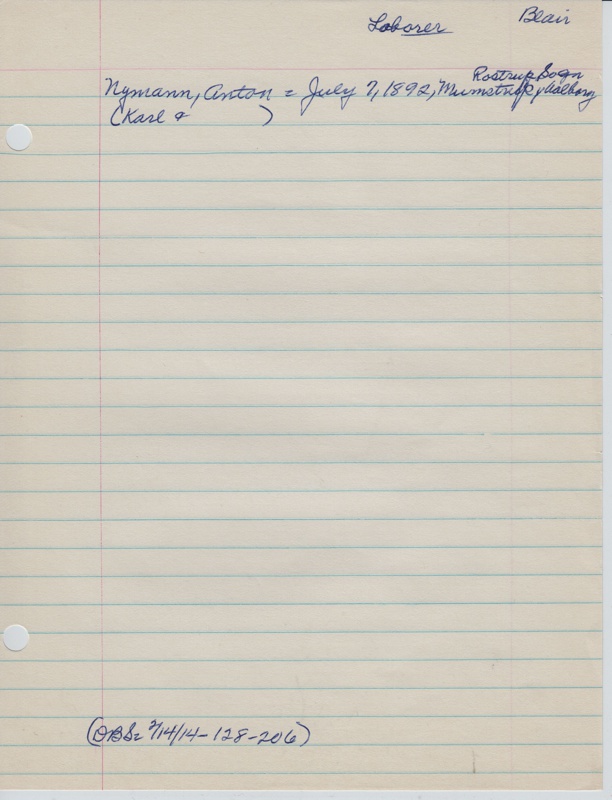 Laborer
Blair
Rostrup Sogn
Nymann, Anton = July 7, 1892, Mumstrup, Aalborg
(Karl & )
(DBS= 2/14/14-128-206)